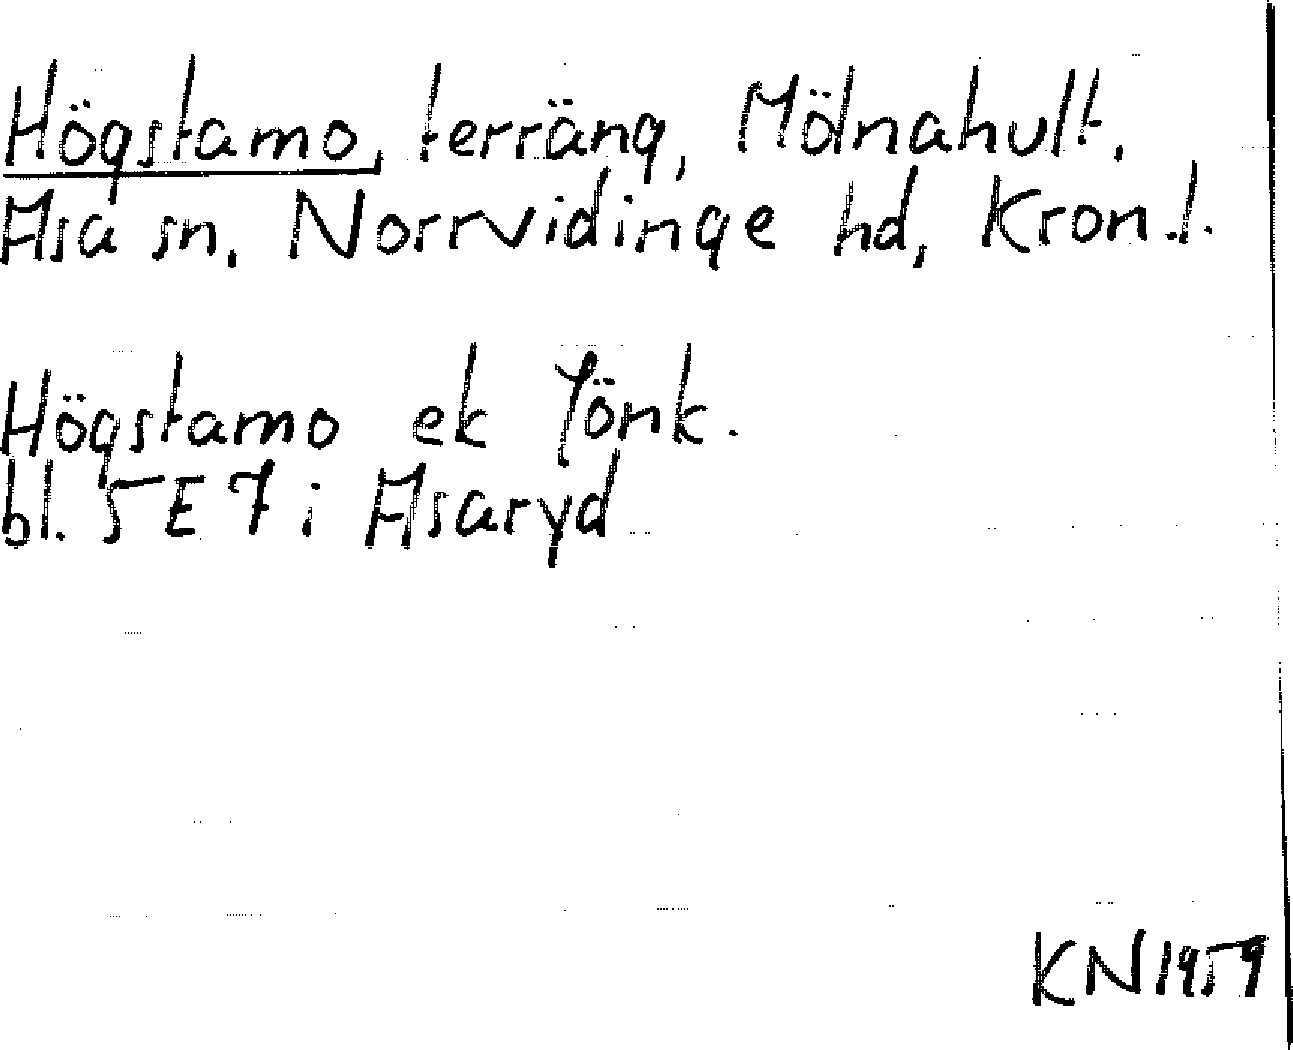 Högstamo, terräng, Mölnahult,
Asa sn, Norrvidinge hd, Kron.l.
Högstamo ek Jönk.
bl. 5E7i Asaryd
KN1959